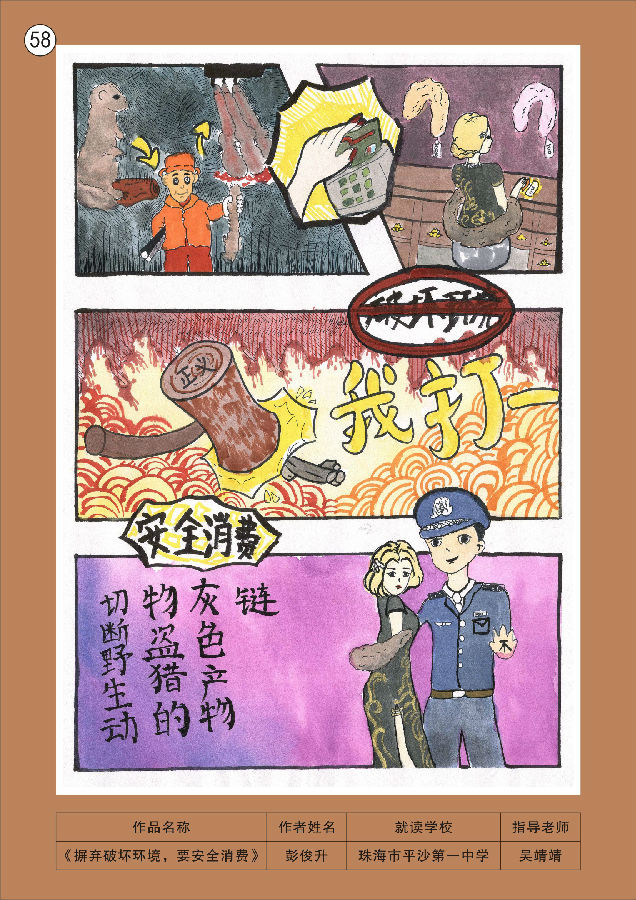 58
破坏环境
正义
我打一
安全消费
切断野生动
物盗猎的
灰色产物
链
不
作品名称 作者姓名 就读学校 指导老师
《摒弃破坏环境，要安全消费》 彭俊升 珠海市平沙第一中学 吴靖靖